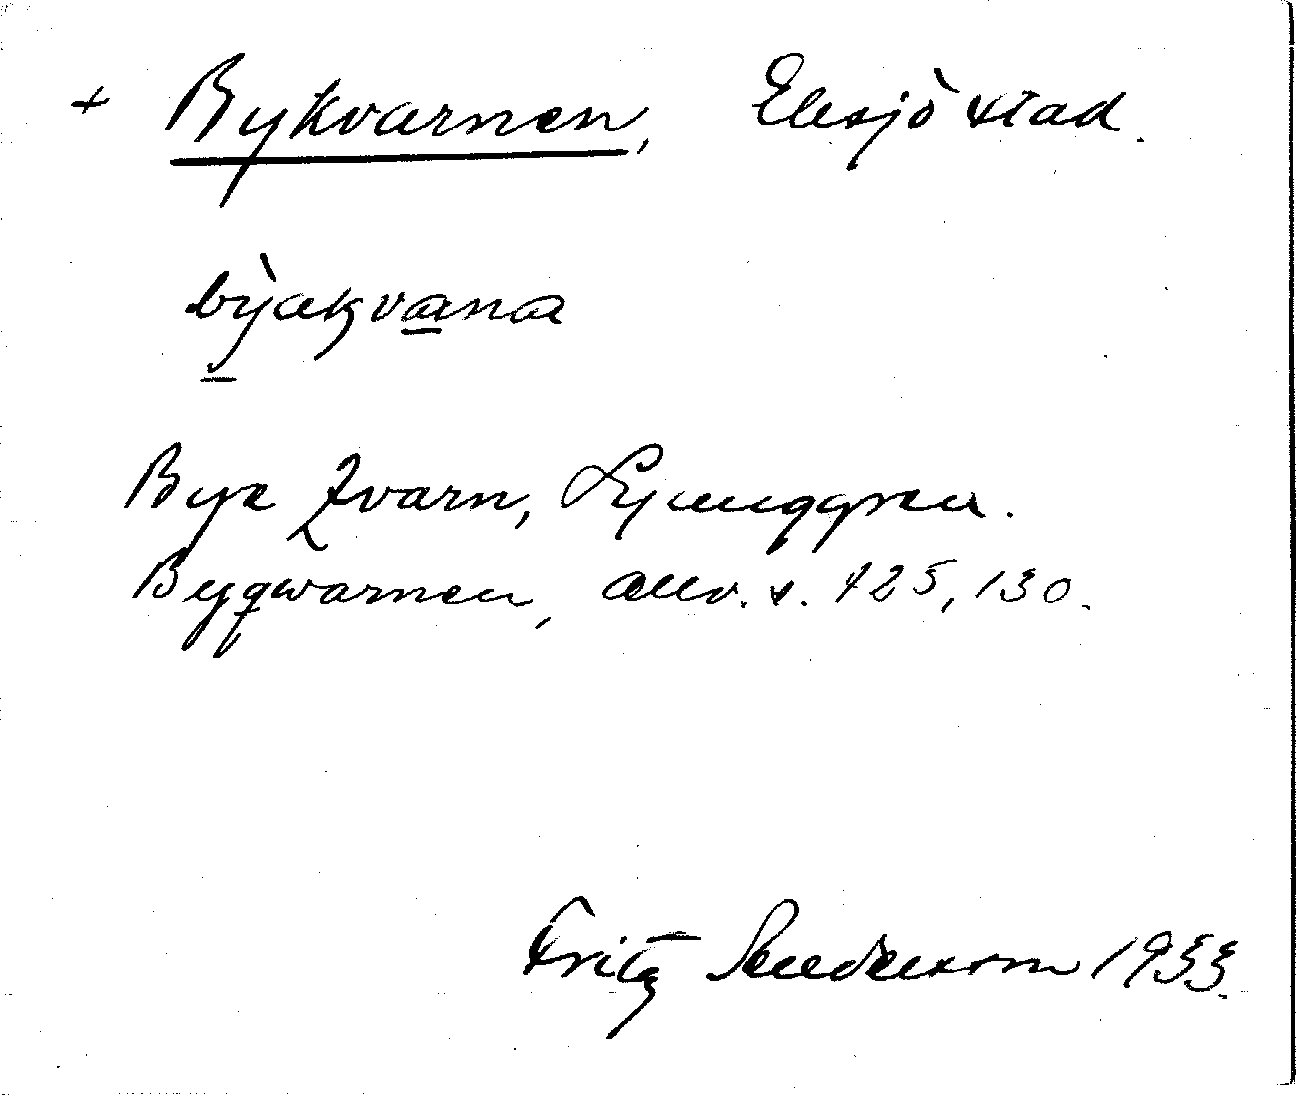 + Bykvarnen, Eksjö stad.
byakvana
Bya Qvarn, Ljunggren.
Byqwarnen, Allv. s. 125, 130.
Fritz 1933.